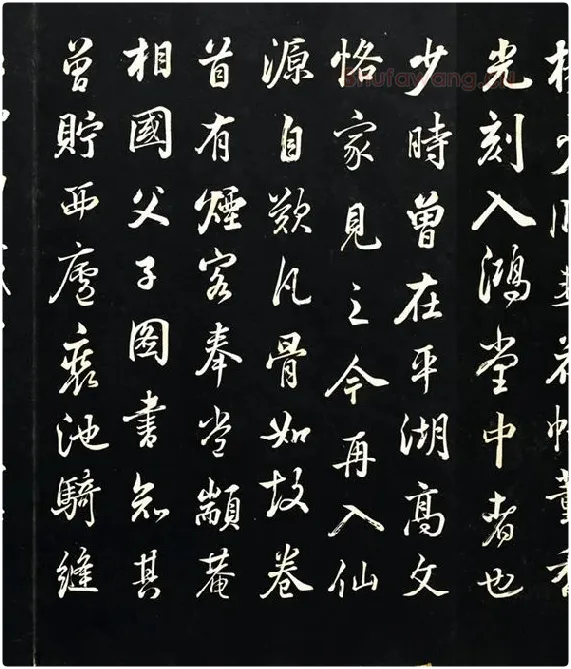 帖董香
光刻入鴻堂中者也
少時曾在平湖高文
恪家見之今再入仙
源自歎凡骨如故卷
首有煙客奉常顓菴
相國父子圖書知其
曾貯西廬池騎縫